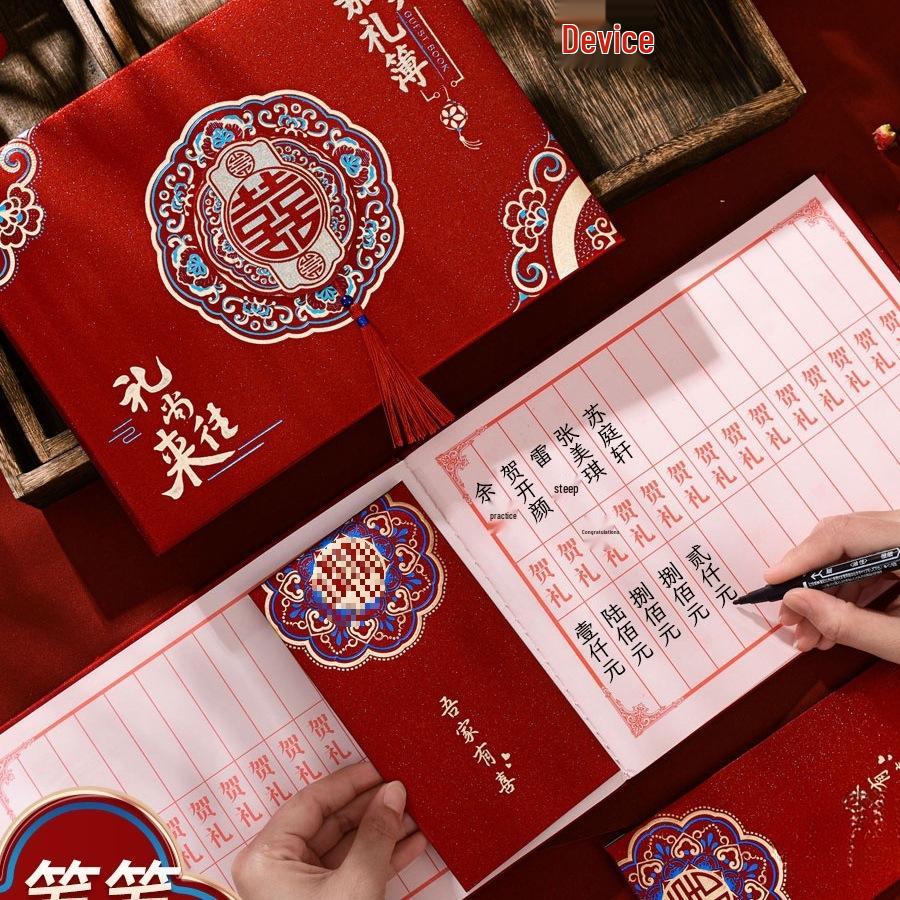 Device
礼簿
GUEST BOOK
囍
礼尚
往来
苏庭轩
张美琪
雷
贺开颜
余
steep
practice
Congratulations
贺礼 贺礼 贺礼 贺礼 贺礼 贺礼 贺礼 贺礼 贺礼 贺礼 贺礼 贺礼
贰仟元
捌佰元
捌佰元
陆佰元
壹仟元
吾家有喜
贺礼 贺礼 贺礼 贺礼 贺礼 贺礼
笔笔